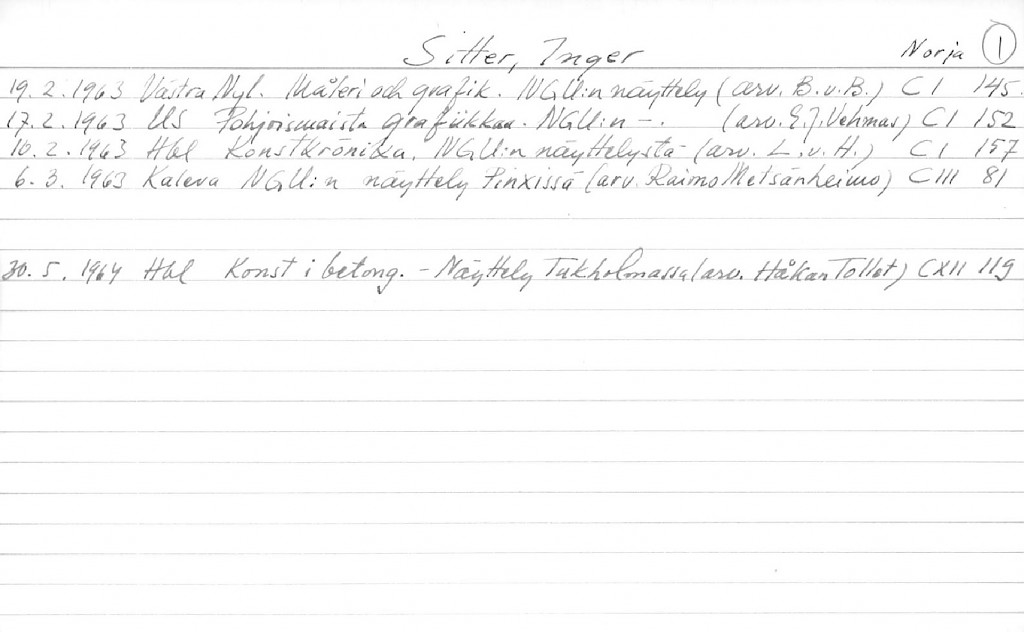 Sitter, Inger Norja 1
19.2.1963 Västra Nyl. Måleri och grafik. NGU:n näyttely (arv. B.v.B.) CI 145.
17.2.1963 US Pohjoismaista grafiikkaa. NGU:n -. (arv. E.J. Vehmas) CI 152
10.2.1963 Hbl Konstkrönika, NGU:n näyttelystä (arv. L.v.H.) CI 157
6.3.1963 Kaleva NGU:n näyttely Pinxissä (arv. Raimo Metsänheimo) CIII 81
30.5.1964 Hbl Konst i betong. - Näyttely Tukholmassa (arv. Håkan Tollet) CXII 119